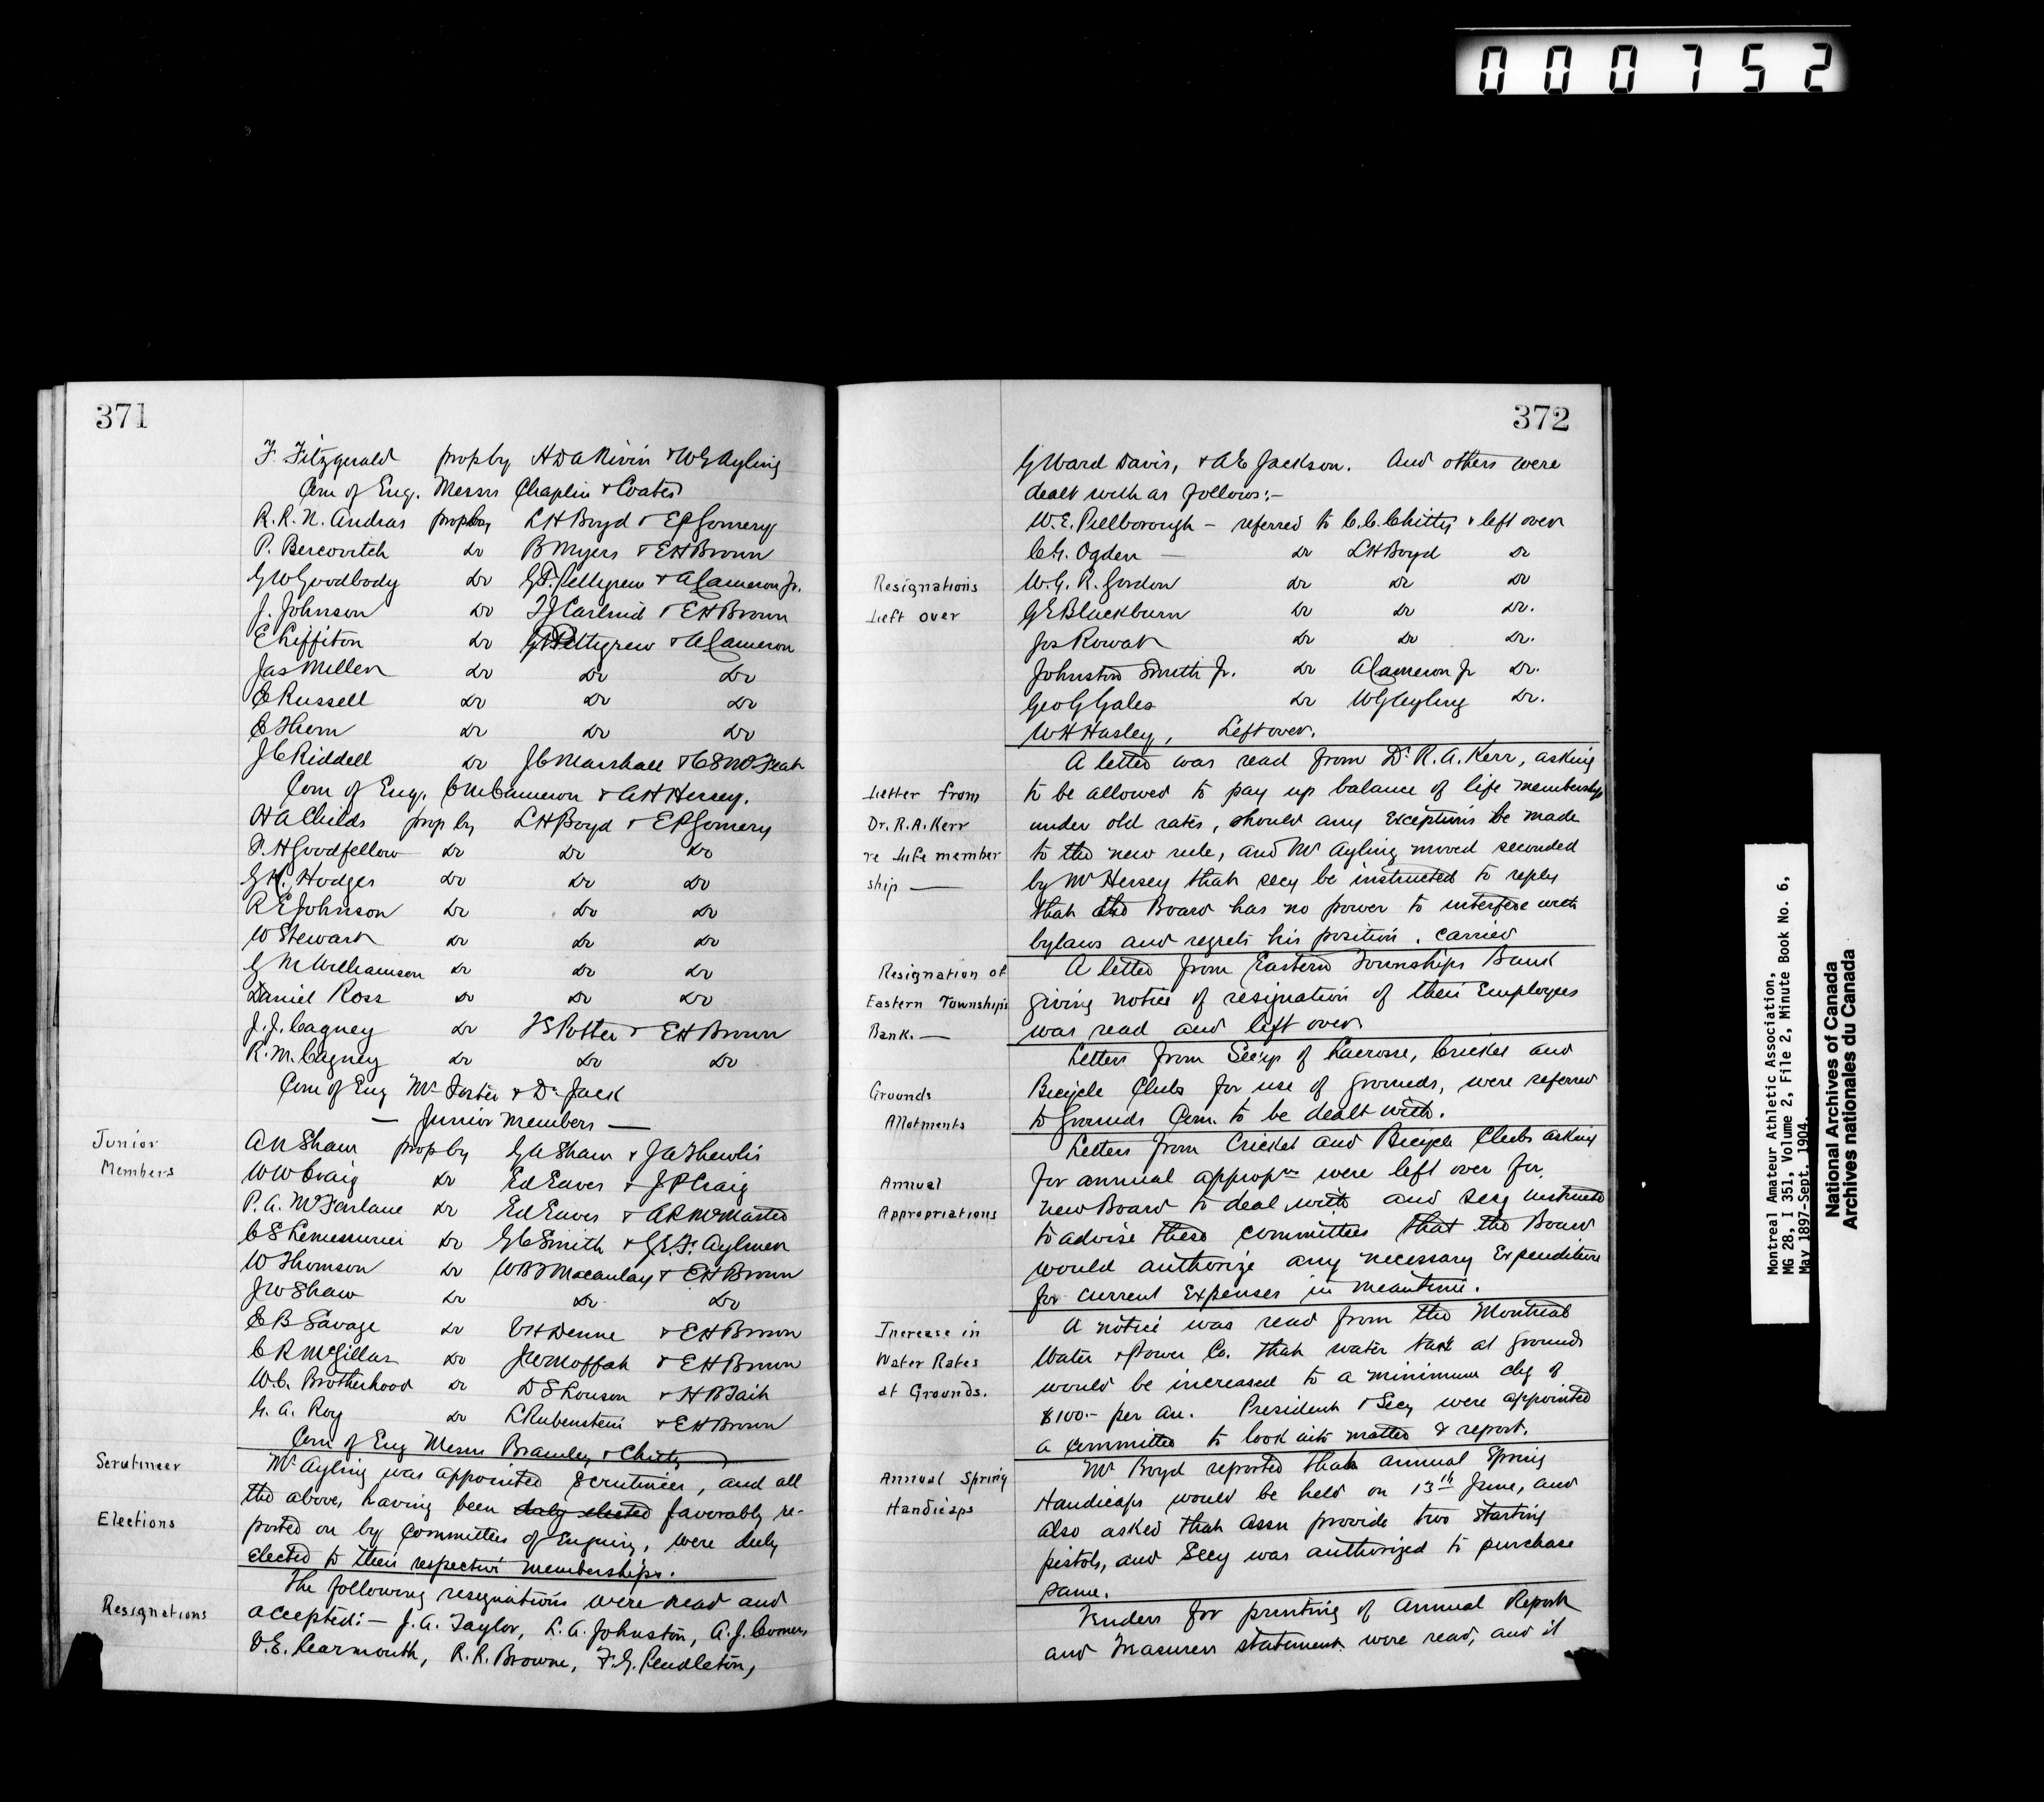 000752
371
F. Fitzgerald prop by H D A Nivin & W G Ayling
Com of Enq. Messrs Chaplin & Coates
R. R. N. Andras prop by L H Boyd & E P Gomery
P. Bercovitch Do B Myers & E H Brown
G W Goodbody Do G T. Pettigrew & A Cameron Jr.
J. Johnson Do & E H Brown
E Do Pettigrew & A Cameron
Jas Miller Do Do Do
E Russell Do Do Do
E Thern Do Do Do
J C Riddell Do J C Marshall &
Com of Enq. Cameron & A H Hersey.
H A Childs prop by L H Boyd & E P Gomery
Goodfellow Do Do Do
G H. Hodges Do Do Do
R E Johnson Do Do Do
W Stewart Do Do Do
G M Williamson Do Do Do
Daniel Ross Do Do Do
J. J. Cagney Do Potter & E H Brown
R. M. Cagney Do Do Do
Com of Enq Mr Foster & Dr Jack
— Junior Members —
Junior
Members
A N Shaw prop by G A Shaw & J A Thewlis
W W Craig Do Ed Eaves & J P Craig
P. A. McFarlane Do Ed Eaves & A R McMaster
C S Lemesurier Do G C Smith & G. E. F. Aylmer
W Thomson Do W B T Macaulay & E H Brown
J W Shaw Do Do Do
E B Savage Do V H Denne & E H Brown
C R McGillar Do J W Moffat & E H Brown
W. C. Brotherhood Do D S Louson & H B Tait
G. A. Roy Do L Rubenstein & E H Brown
Com of Enq Messrs Bramley & Chitty
Scrutineer
Mr Ayling was appointed scrutineer, and all
the above, having been duly elected favorably re-
Elections
ported on by Committees of Enquiry, were duly
elected to their respective memberships.
The following resignations were read and
Resignations
accepted:— J. A. Taylor, L. A. Johnston, A. J. Coomer,
V. E. Learmonth, R. R. Browne, F. G. Pendleton,
372
G Ward Davis, & A E Jackson. And others were
dealt with as follows:—
W. E. Pellborough — referred to C. C. Chitty & left over
C G. Ogden — Do L H Boyd Do
Resignations
W. G. R. Gordon Do Do Do
Left over
G E Blackburn Do Do Do.
Jos Rowat Do Do Do.
Johnston Smith Jr. Do A Cameron Jr Do.
Geo G Gales Do W G Ayling Do.
W H Hasley, Left over.
A letter was read from Dr. R. A. Kerr, asking
Letter from
to be allowed to pay up balance of life membership
Dr. R. A. Kerr
under old rates, should any exceptions be made
re Life member
to the new rule, and Mr Ayling moved seconded
ship —
by Mr Hersey that secy be instructed to reply
that the Board has no power to interfere with
bylaws and regrets his position. Carried
Resignation of
A letter from Eastern Townships Bank
Eastern Townships
giving notice of resignation of their Employees
Bank. —
was read and left over
Letters from Secys of Lacrosse, Cricket and
Grounds
Bicycle Clubs for use of grounds, were referred
Allotments
to Grounds Com. to be dealt with.
Letters from Cricket and Bicycle Clubs asking
Annual
for annual appropns were left over for
Appropriations
new Board to deal with and Secy instructed
to advise these committees that the Board
would authorize any necessary Expenditure
for current Expenses in meantime.
Increase in
A notice was read from the Montreal
Water Rates
Water & Power Co. that water tax at grounds
at Grounds.
would be increased to a minimum chg of
$100.- per an. President & Secy were appointed
a committee to look into matter & report.
Annual Spring
Mr Boyd reported that annual Spring
Handicaps
Handicaps would be held on 13th June, and
also asked that Assn provide two starting
pistols, and Secy was authorized to purchase
same.
Tenders for printing of Annual Report
and Treasurers statement were read, and it
Montreal Amateur Athletic Association,
MG 28, I 351, Volume 2, File 2, Minute Book No. 6,
May 1897-Sept. 1904.
National Archives of Canada
Archives nationales du Canada